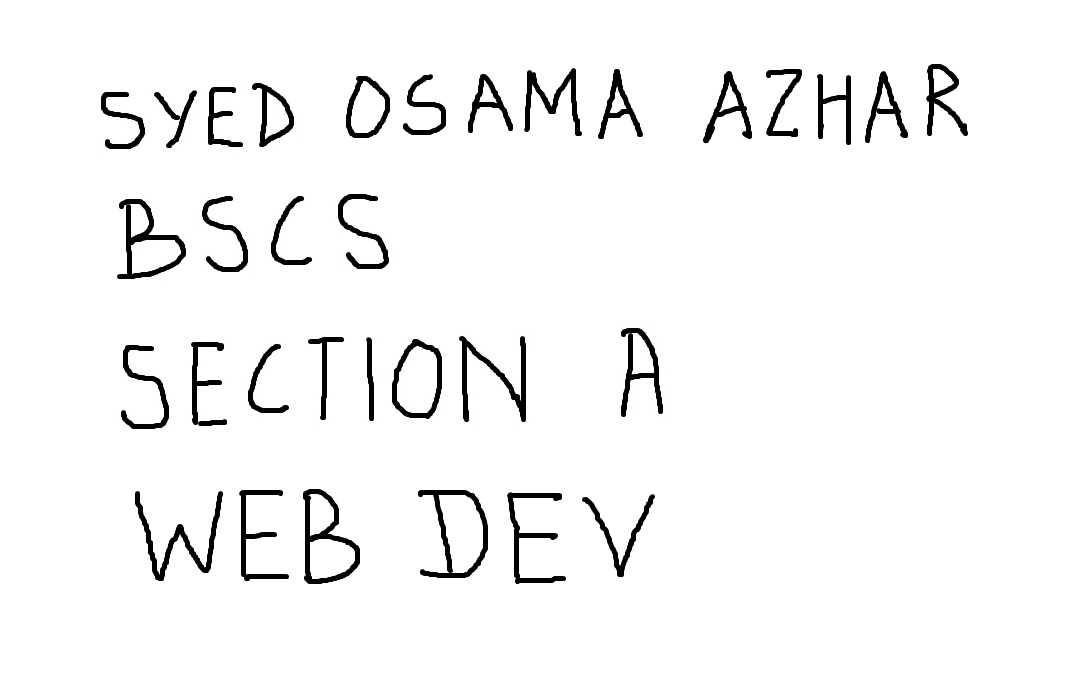 SYED OSAMA AZHAR
BSCS
SECTION A
WEB DEV